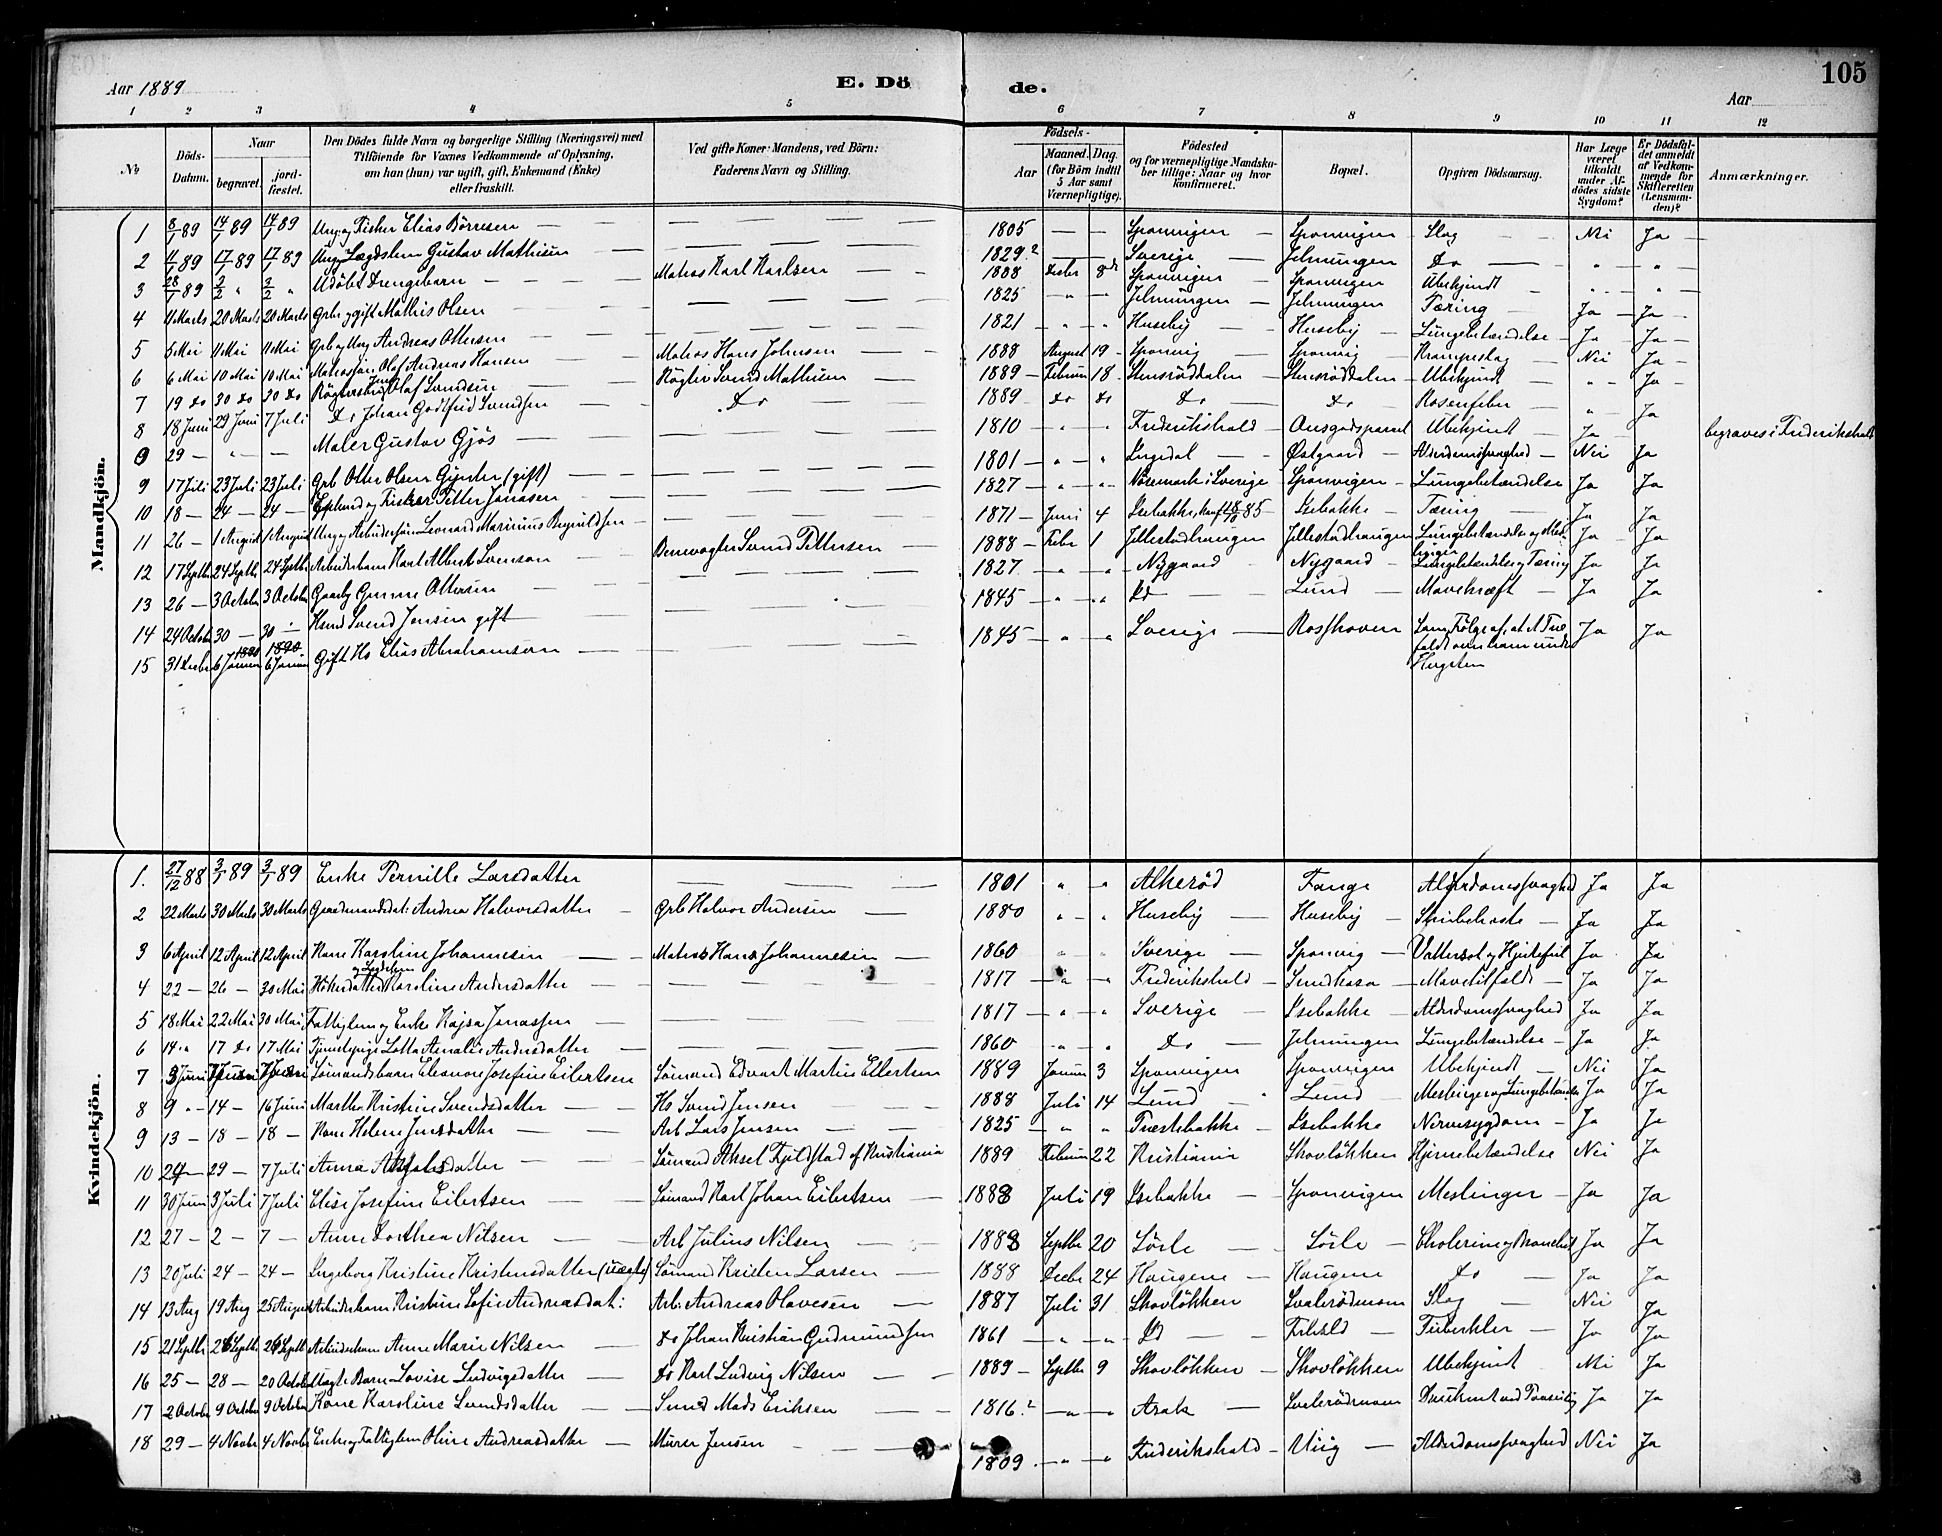 Aar 1889
E. Dö
de.
105
Aar
1 2 3 4 5 6 7 8 9 10 11 12
No
Döds-Datum.
Naar
begravet.
jordfæstet.
Den Dödes fulde Navn og borgerlige Stilling (Næringsvei) med
Tilföiende for Voxnes Vedkommende af Oplysning,
om han (hun) var ugift, gift, Enkemand (Enke)
eller fraskilt.
Ved gifte Koner: Mandens, ved Börn:
Faderens Navn og Stilling.
Födsels-
Aar
Maaned. Dag.
(for Börn indtil
5 Aar samt
Værnepligtige).
Födested
og for værnepligtige Mandska-
ber tillige: Naar og hvor
konfirmeret.
Bopæl.
Opgiven Dödsaarsag.
Har Læge
været
tilkaldt
under Af-
dödes sidste
Sygdom?
Er Dödsfal-
det anmeldt
af Vedkom-
mende for
Skifteretten
(Lensman-
den)?
Anmærkninger.
Mandkjön.
1 8/1 89 14/1 89 14/1 89 Ung. og Fisker Elias Börresen — 1805 — — Sponvigen — Sponvigen — Slag — Nei Ja
2 11/1 89 17/1 89 17/1 89 Ung. Lægdslem Gustav Mathisen — 1829? — Sverige — Jelmungen — Do — " "
3 28/1 89 3/2 " 3/2 " Udöbt Drengebarn — Matros Karl Karlsen — 1888 Decbr 8de Sponvigen — Sponvigen — Ubekjendt — " "
4 11 Marts 20 Marts 20 Marts Grbr og gift Mathis Olsen — 1825 " — Jelmungen — Jelmungen Tæring — Ja — Ja
5 5 Mai 11 Mai 11 Mai Grb og Ung Andreas Ottersen — 1821 — " — " Huseby — Huseby — Lungebetændelse — Ja — Ja
6 6 Mai 10 Mai 10 Mai Matrossön Olaf Andreas Hansen — Matros Hans Johnsen — 1888 August 19 — Sponvig — Sponvig — Krampeslag Nei Ja
7 19 do 30 do 30 do Olaf Svendsen — Røgter Svend Mathisen — 1889 — Februar 18 — Stenröddalen — Stenröddalen — Ubekjendt — " — Ja
8 18 Juni 29 Juni 7 Juli Do Johan Godtfred Svendsen — Do 1889 — do do Do — Do — Rosenfeber — " Ja
0 29 — " — Maler Gustav Gjös — 1810 — " — " Frederikshald — Ubekjendt — Ja — begraves i Frederikshald
9 17 Juli 23 Juli 23 Juli Grb Otter Olsen (gift) — 1801 — " — " — Østgaard — Alderdomssvaghed — Nei Ja
10 18 — 24 — 24 — og Fisker Petter Jonassen — 1827 — " — " i Sverige — Sponvigen — Lungebetændelse Ja Ja
11 26 — 1 August 1 August Ung og Arbeidersön Leonard Marinius — 1871 — Juni 4 Isebakke, 85 — Isebakke — Tæring — Ja Ja
12 17 Septbr 24 Septbr 24 Septbr Arbeiderbarn Karl Albert Svenson — Banevogter Svend Pettersen — 1888 — Febr 1 Lungebetændelse og Mæslinger Ja — Ja
13 26 — 3 October 3 October Gaarbr Gunne Ottersen — 1827 — " — " Nygaard — Nygaard — Lungebetændelse og Tæring Ja Ja
14 24 Octobr 30 — 30 — Hsmd Svend Jensen gift — 1845 — " — " Id — Lund — Mavekræft — Ja Ja
15 31 Decbr 6 Januar 6 Januar 1890 Gift Hs Elias Abrahamson — 1845 — " — " Sverige — Rosshoven — Fölge af, at et Træ faldt over ham under Hugsten Ja Ja
Kvindekjön.
1. 27/12 88 3/1 89 3/1 89 Enke Pernille Larsdatter — 1801 " — " Alkeröd Fange Alderdomssvaghed Ja Ja
2 22 Marts 30 Marts 30 Marts Gaardmandsdat: Andrea Halvorsdatter — Grb Halvor Andersen — 1880 " — " Huseby — Huseby — Strubehoste — Ja Ja
3 6 April 12 April 12 April Kone Karoline Johannesen — Matros Hans Johannesen — 1860 " " Sverige — Sponvig — Vattersot og Hjertefeil Ja Ja
4 22 — 26 — 30 Mai Hökerdatter og Lægdslem Karoline Andersdatter — 1817 — " — " Frederikshald — — Mavetilfælde — Ja Ja
5 18 Mai 22 Mai 30 Mai Fattiglem og Enke Kajsa Jonassen — 1817 — " " Sverige — Isebakke — Alderdomssvaghed Ja Ja
6 14 " 17 do 17 Mai Tjenestepige Lotta Amalie Andersdatter — 1860 — " — " Do — Jelmungen — Lungebetændelse — Ja Ja
7 3 Juni 7 Juni 7 Juni Sömandsbarn Eleonore Josefine Eilertsen Sömand Edvart Martin Eilertsen 1889 Januar 3 Sponvigen — Sponvigen Ubekjendt — Nei Ja
8 9 " — 14 — 16 Juni Martha Kristine Svendsdatter — Hs Svend Jensen — 1888 Juli 14 Lund — Lund — Meslinger og Lungebetændelse Ja Ja
9 13 — 18 — 18 — Kone Helene Jensdatter — Arb Lars Jensen — 1825 — " " Træstebakke — Isebakke Nervesygdom — Ja Ja
10 24 — 29 — 7 Juli Anna Akselsdatter — Sömand Aksel Fjeldstad af Kristiania 1889 Februar 22 Kristiania Skovlökken Hjernebetændelse Nei Ja
11 30 Juni 3 Juli 7 Juli Elise Josefine Eilertsen — Sömand Karl Johan Eilertsen — 1888 Juli 19 Isebakke — Sponvigen Meslinger — Ja Ja
12 27 — 2 — 7 — Anne Dorthea Nilsen — Arb Julius Nilsen — 1888 Septbr 20 Sörle — Sörle — Cholerine og Ja Ja
13 20 Juli 24 — 24 — Ingeborg Kristine Kristensdatter (uægte) Sömand Kristen Larsen — 1888 Decbr 24 Haugene — Haugene Do — Ja Ja
14 13 Aug 19 Aug 25 August Arbeiderbarn Kristine Sofie Andreasdat: Arb: Andreas Olavesen — 1887 Juli 31 Skovlökken Svaleródmoen Slag — Nei Ja
15 21 Septbr 26 Septbr 26 Septbr Anne Marie Nilsen — do Johan Kristian Gudmundsen 1861 — " — " Id — — Tuberkler — Ja Ja
16 25 — 28 — 20 October Uægte Barn Lovise Ludvigsdatter — do Karl Ludvig Nilsen — 1889 — Septbr 9 Skovlökken — Skovlökken Ubekjendt — Nei Ja
17 2 October 9 October 9 October Kone Karoline Svendsdatter — Mads Eriksen — 1816? — " — " — Svaleródmoen Ja Ja
18 29 — 4 Novbr 4 Novbr Enke og Fattiglem Oline Andreasdatter — Murer Jensen — 1809 — " — " Frederikshald — Viig — Alderdomssvaghed Nei Ja